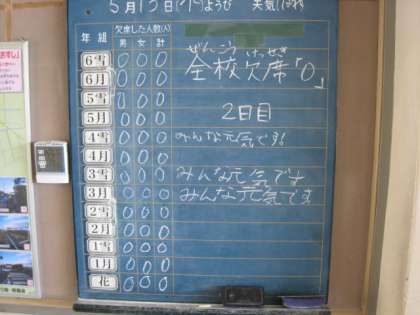 5月15日( )ようび 天気(はれ
年 組 欠席した人数(人)
男 女 計
ぜんこう けっせき
全校欠席「0」
2日目
6雪 0 0 0
6月 0 0 0
5雪 0 0 0
5月 0 0 0
4雪 0 0 0 みんな元気です!
4月 0 0 0
3雪 0 0 0 みんな元気です
3月 0 0 0 みんな元気です
2雪 0 0 0
2月 0 0 0
1雪 0 0 0
1月 0 0 0
花 0 0 0